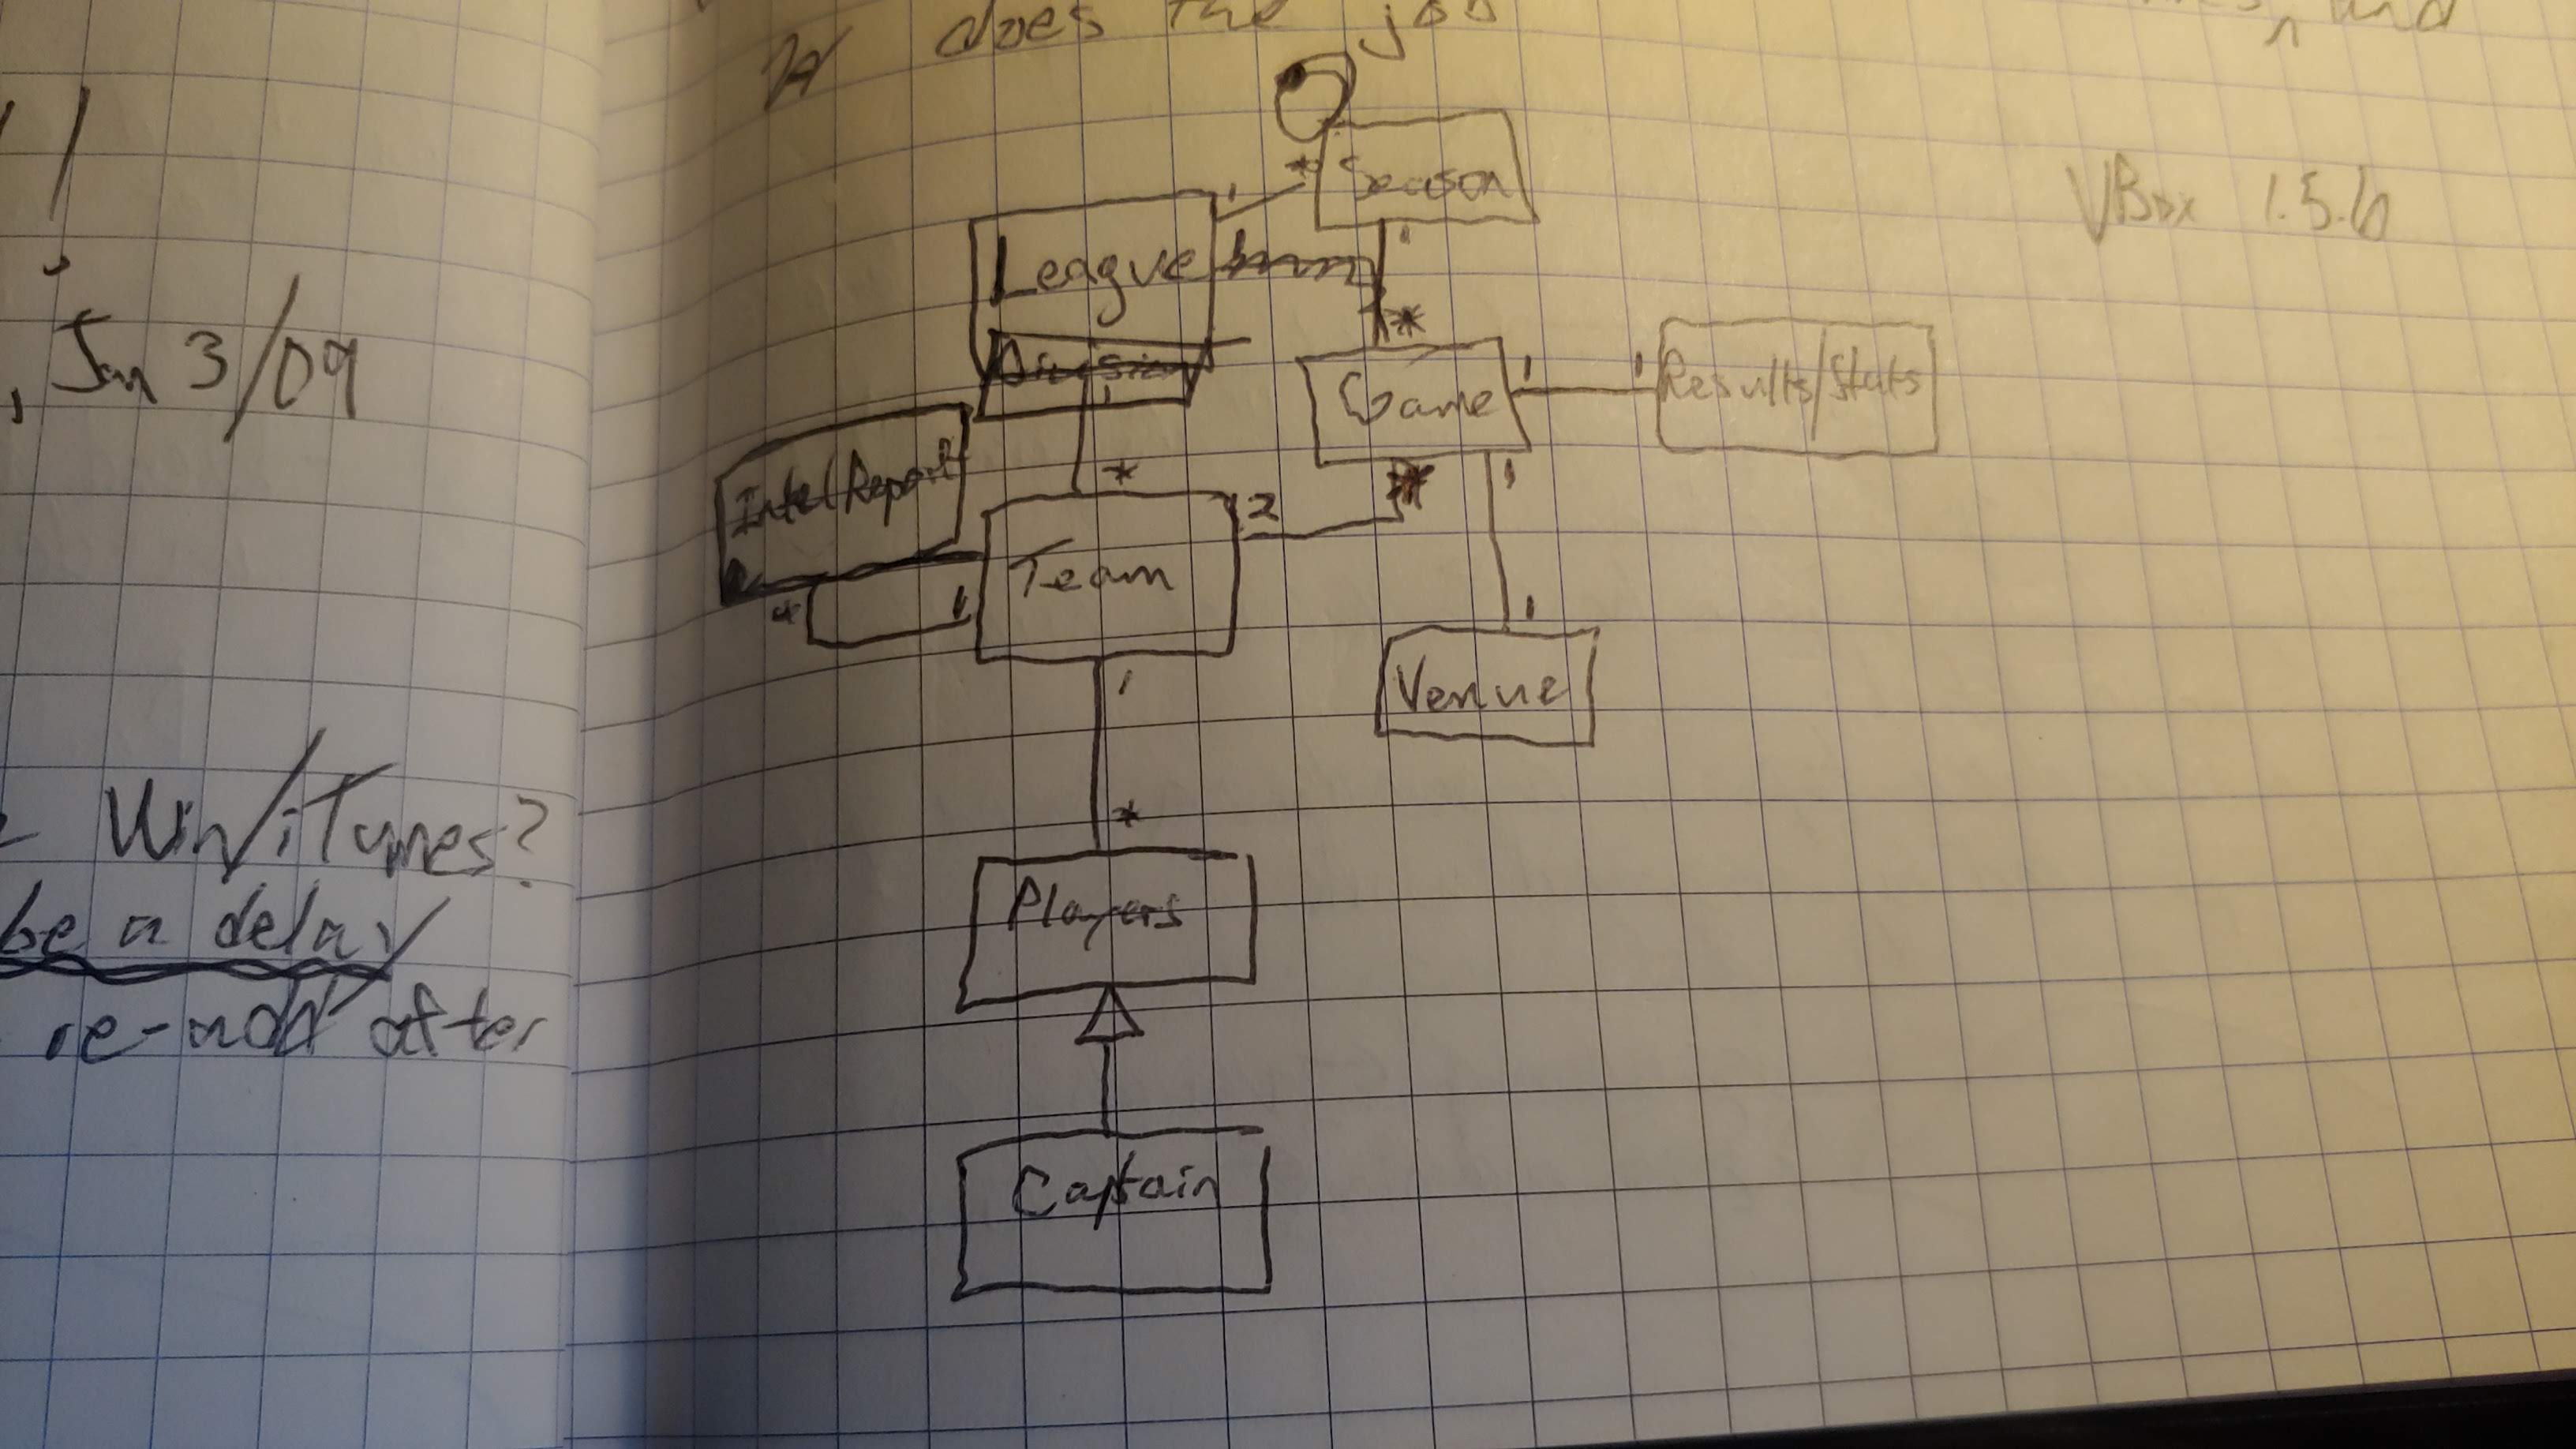 , Jan 3/09
Win/iTunes?
be a delay
re-add after
does the job
and
VBox 1.5.6
1 * Season
League
1
*
Division
1
Game
1 1 Results/Stats
Intel Report
*
2 *
1
Team
* 1
1
1
Venue
*
Players
Captain